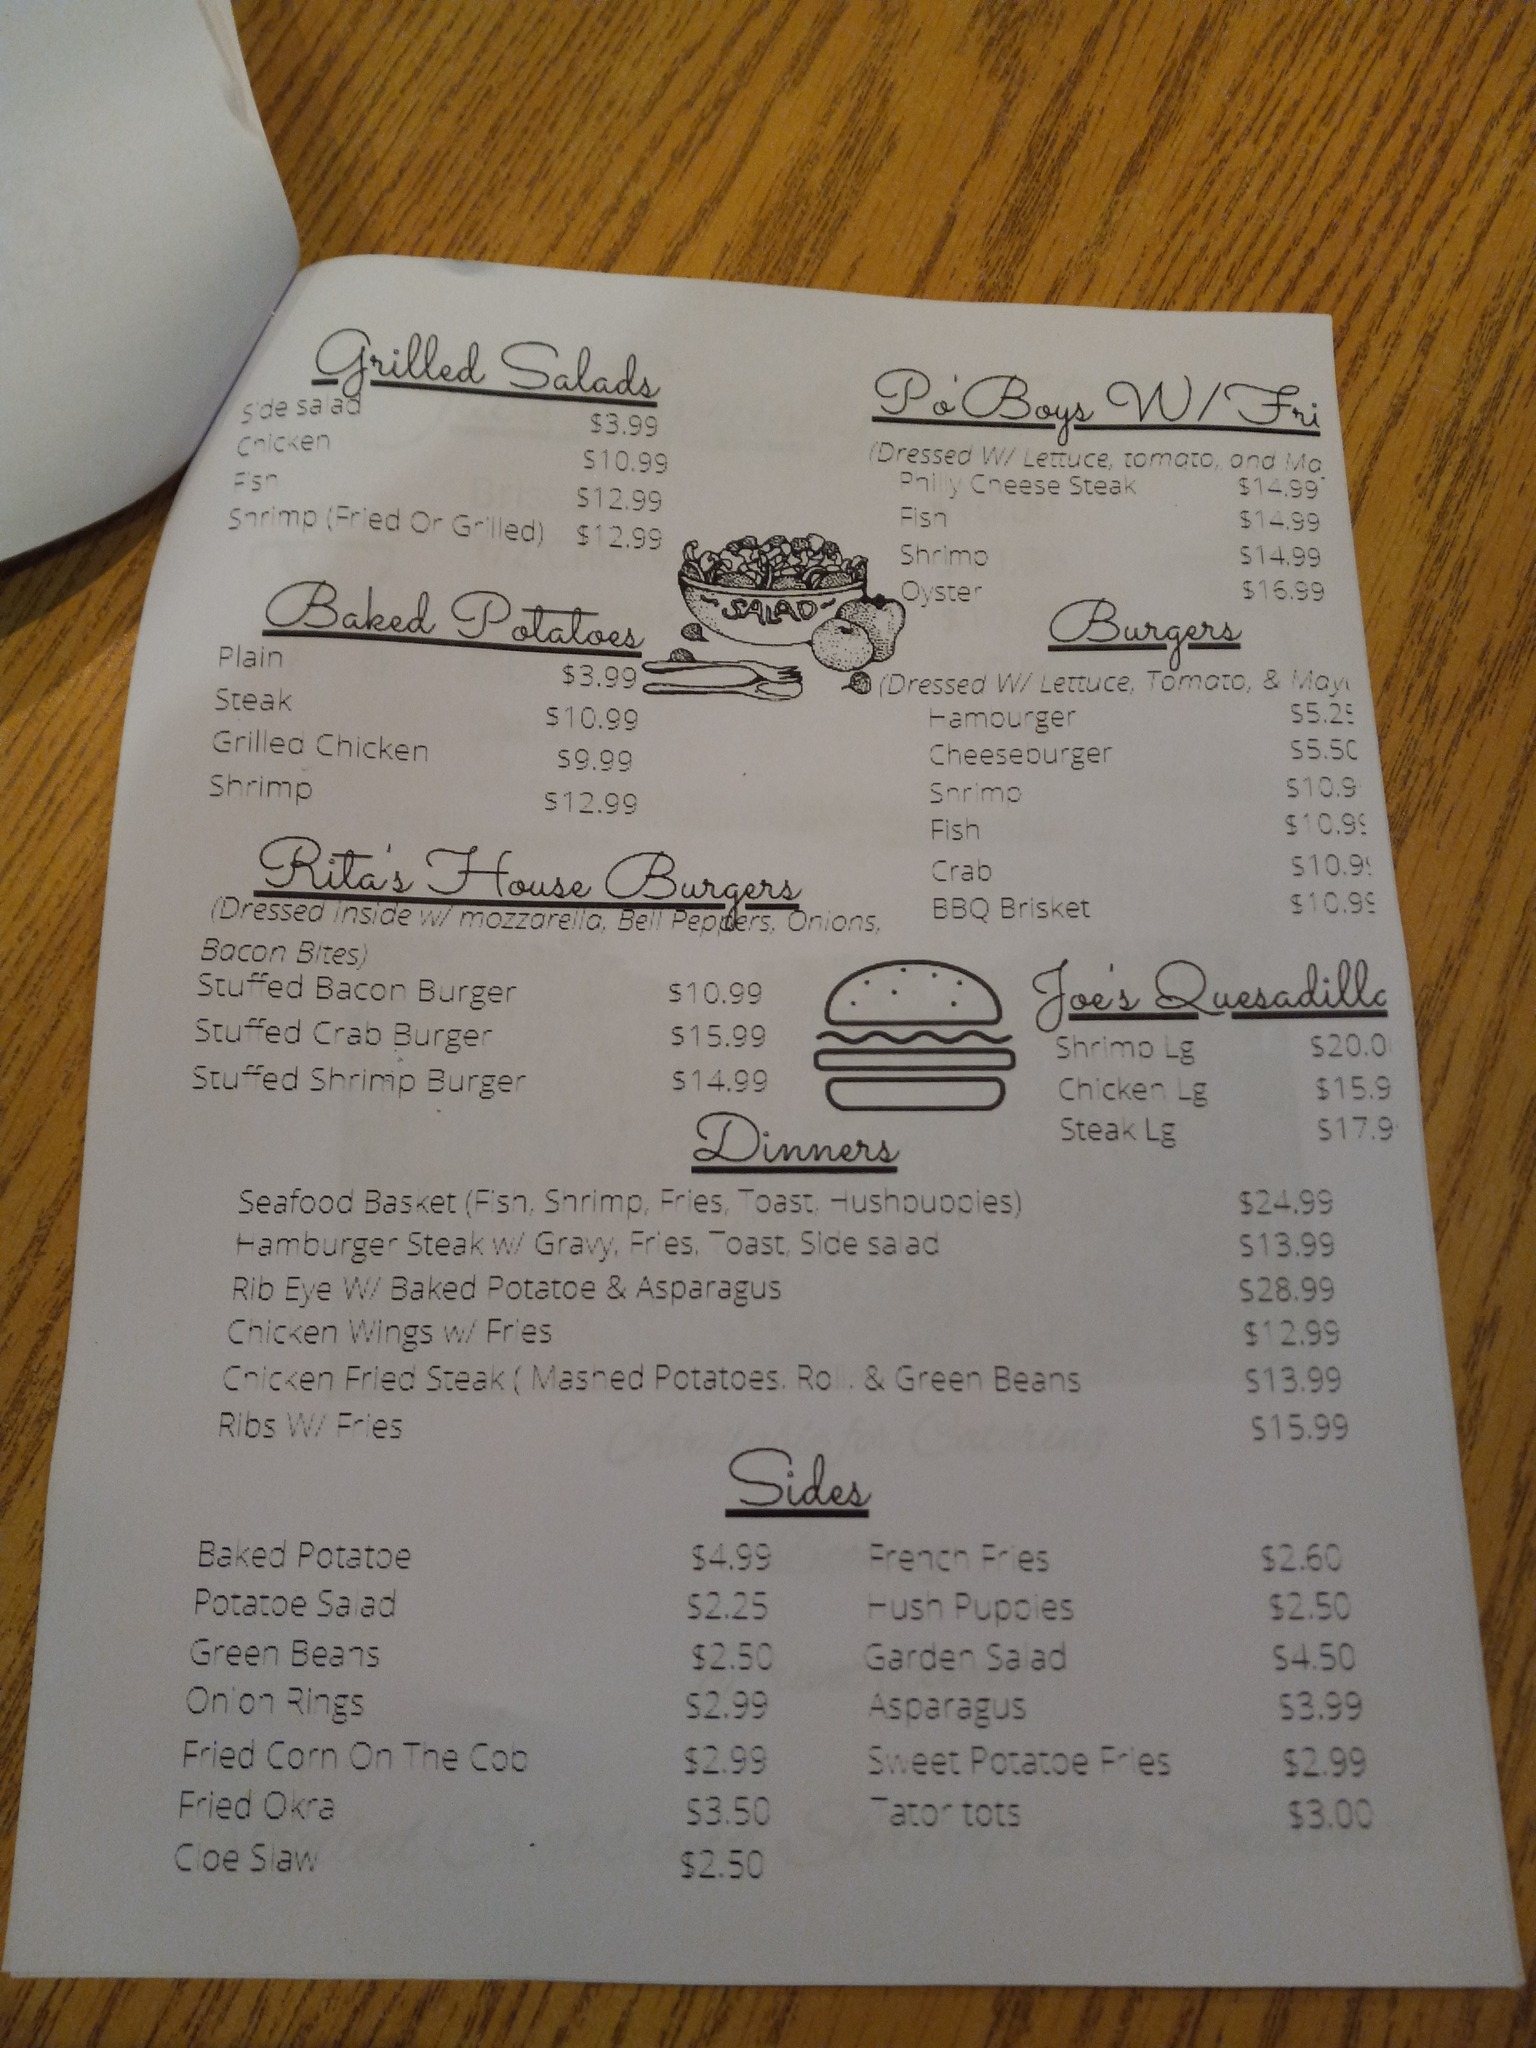 Grilled Salads
Side salad $3.99
Chicken $10.99
Fish $12.99
Shrimp (Fried Or Grilled) $12.99
SALAD
Baked Potatoes
Plain $3.99
Steak $10.99
Grilled Chicken $9.99
Shrimp $12.99
Rita's House Burgers
(Dressed inside w/ mozzarella, Bell Peppers, Onions,
Bacon Bites)
Stuffed Bacon Burger $10.99
Stuffed Crab Burger $15.99
Stuffed Shrimp Burger $14.99
Po'Boys W/Fri
(Dressed W/ Lettuce, tomato, and Ma
Philly Cheese Steak $14.99
Fish $14.99
Shrimp $14.99
Oyster $16.99
Burgers
(Dressed W/ Lettuce, Tomato, & May
Hamburger $5.25
Cheeseburger $5.50
Shrimp $10.9
Fish $10.99
Crab $10.99
BBQ Brisket $10.99
Joe's Quesadilla
Shrimp Lg $20.0
Chicken Lg $15.9
Steak Lg $17.9
Dinners
Seafood Basket (Fish, Shrimp, Fries, Toast, Hushpuppies) $24.99
Hamburger Steak w/ Gravy, Fries, Toast, Side salad $13.99
Rib Eye W/ Baked Potatoe & Asparagus $28.99
Chicken Wings w/ Fries $12.99
Chicken Fried Steak ( Mashed Potatoes, Roll, & Green Beans $13.99
Ribs W/ Fries $15.99
Sides
Baked Potatoe $4.99
Potatoe Salad $2.25
Green Beans $2.50
Onion Rings $2.99
Fried Corn On The Cob $2.99
Fried Okra $3.50
Cloe Slaw $2.50
French Fries $2.60
Hush Puppies $2.50
Garden Salad $4.50
Asparagus $3.99
Sweet Potatoe Fries $2.99
Tator tots $3.00